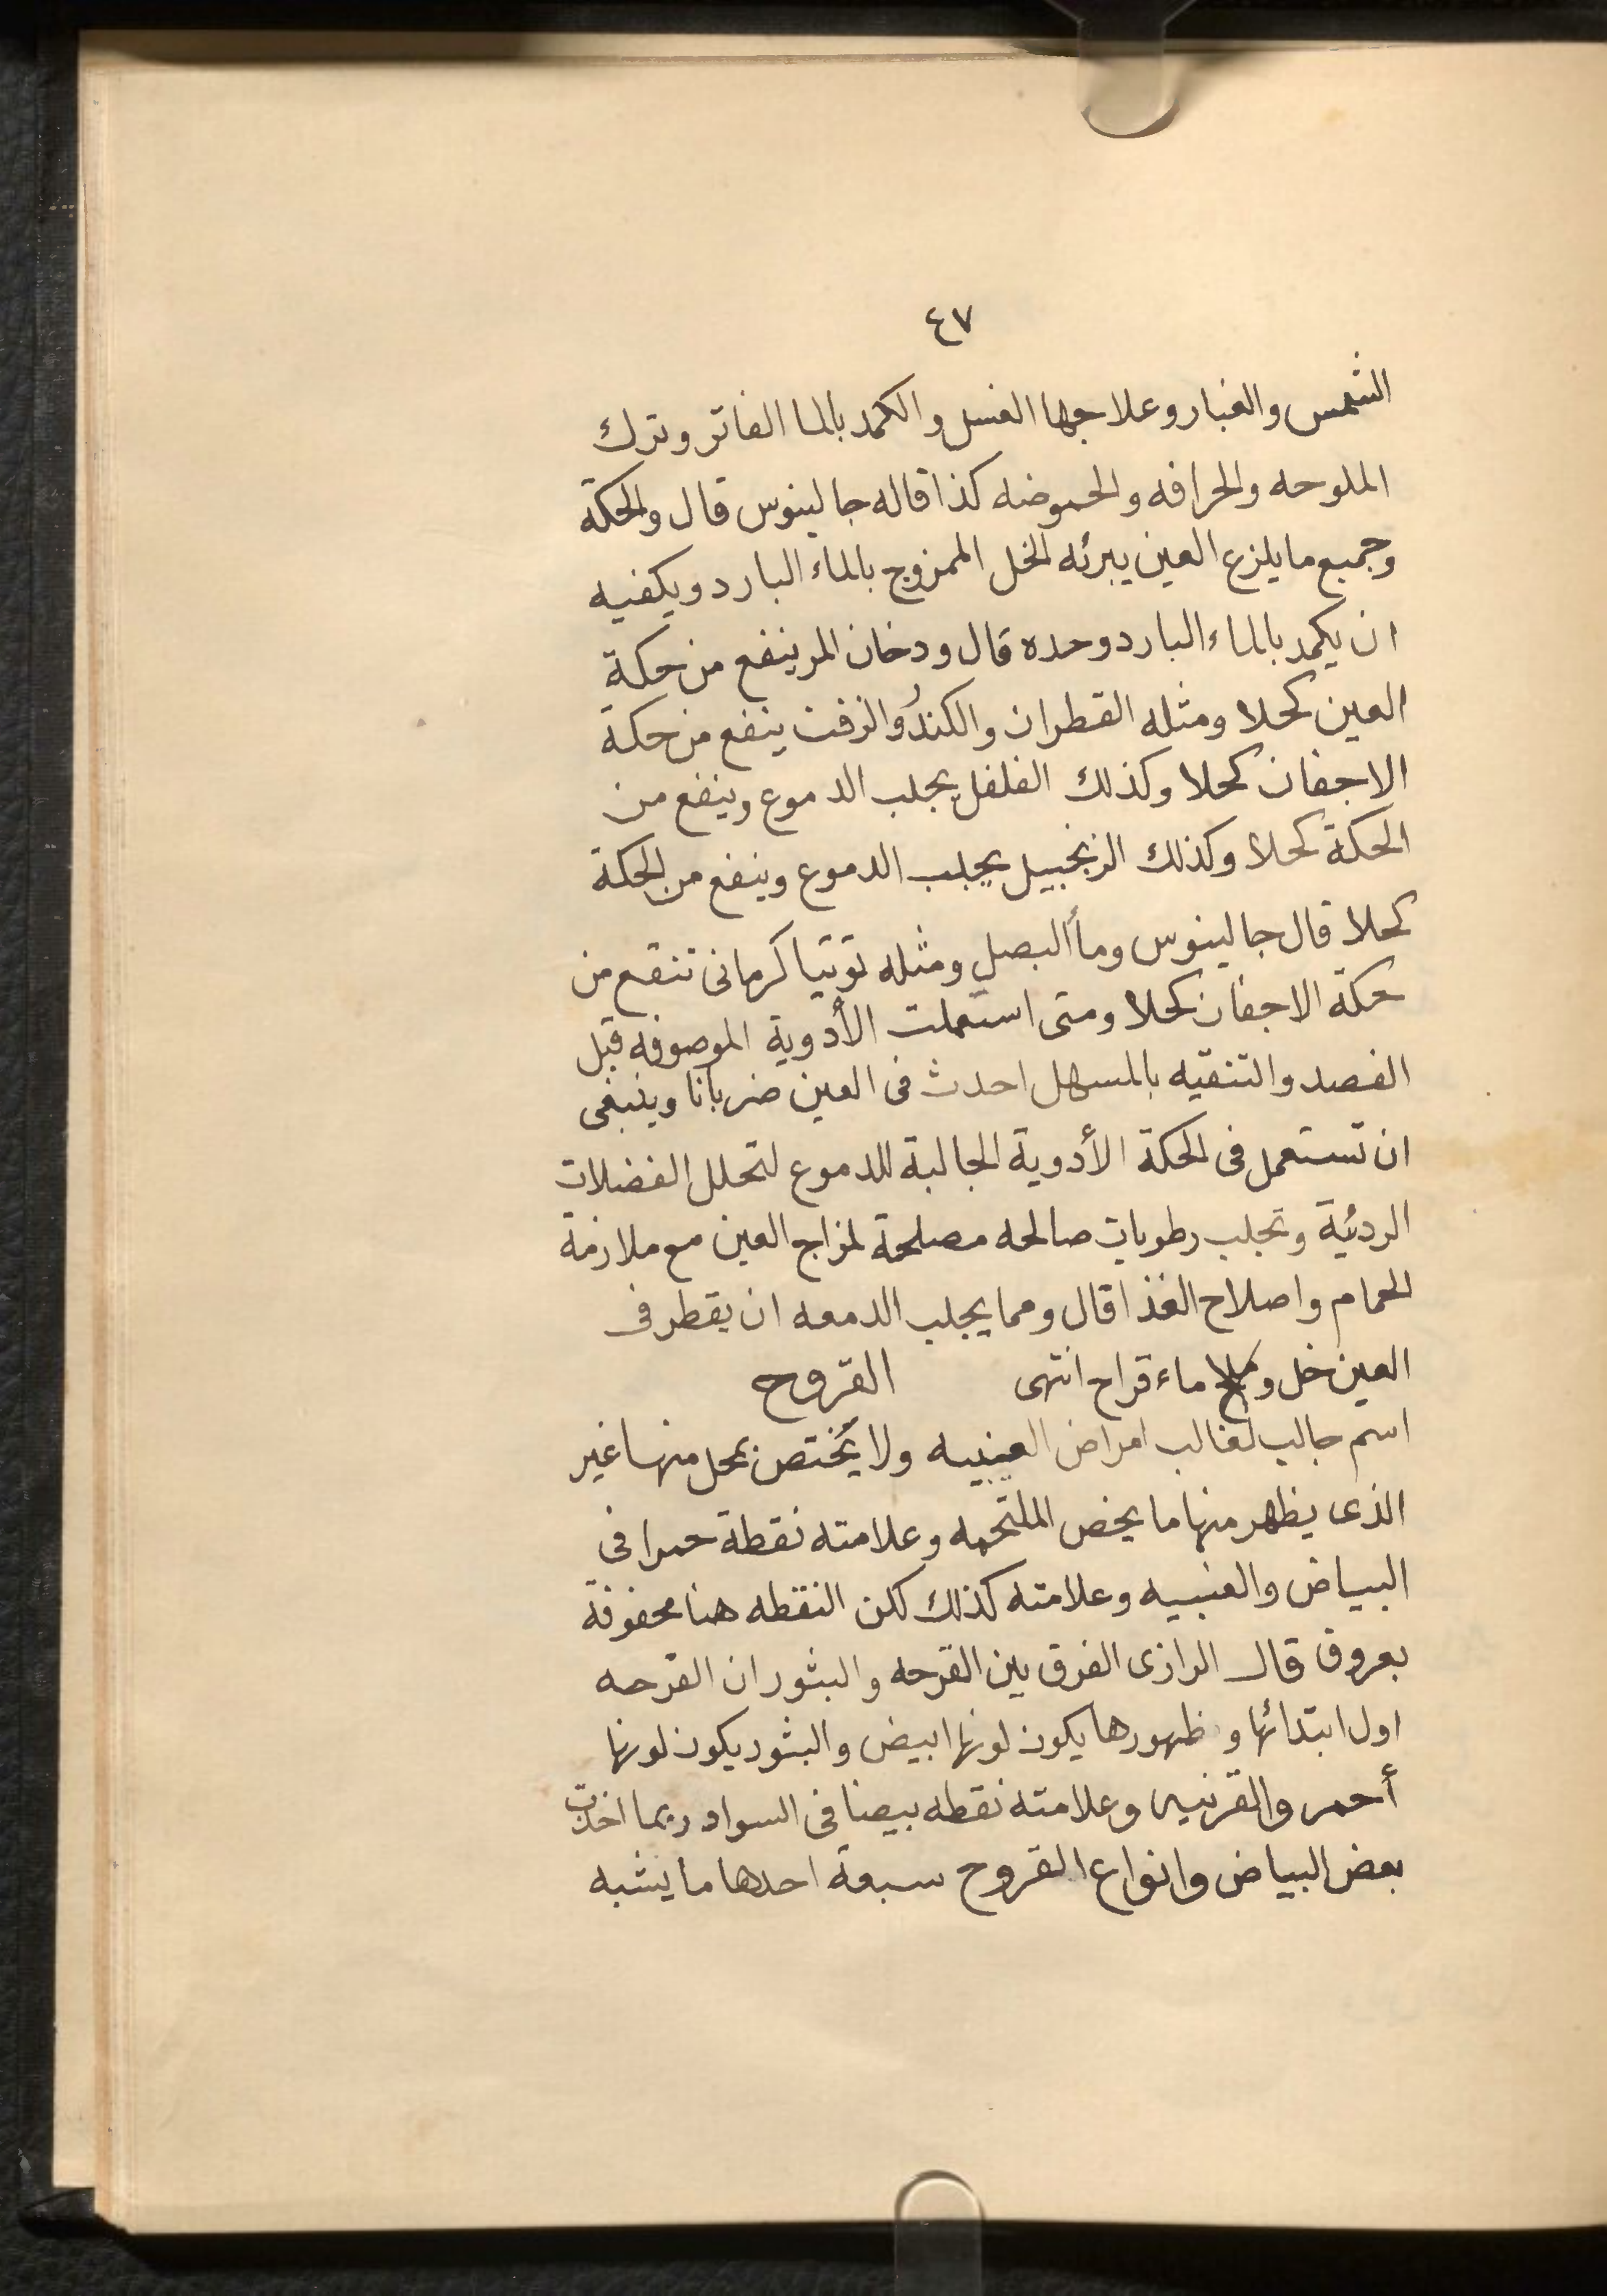 ٤٧
الشمس والغبار وعلاجها الغسل والكمد بالما الفاتر وترك
الملوحه والحرافه والحموضه كذا قاله جالينوس قال والحكة
وجميع ما يلزع العين يبرئه الخل الممزوج بالماء البارد ويكفيه
ان يكمد بالماء البارد وحده قال ودخان المر ينفع من حكة
العين كحلا ومثله القطران والكندُر والزفت ينفع من حكة
الاجفان كحلا وكذلك الفلفل يجلب الدموع وينفع من
الحكة كحلا وكذلك الزنجبيل يجلب الدموع وينفع من الحكة
كحلا قال جالينوس ومأ البصل ومثله توتيا كرمانى تنفع من
حكة الاجفان كحلا ومتى استعملت الأدوية الموصوفه قبل
الفصد والتنقيه بالمسهل احدث فى العين ضربانا وينبغى
ان تستعمل فى الحكة الأدوية الجالبة للدموع لتحلل الفضلات
الرديئة وتجلب رطوبات صالحه مصلحة لمزاج العين مع ملازمة
الحمام واصلاح الغذا قال ومما يجلب الدمعه ان يقطر فى
العين خل و ماء قراح انتهى القروح
اسم جالب لغالب امراض العينيه ولا يختص بمحل منها غير
الذى يظهر منها ما يخص الملتحمه وعلامته نقطة حمرا فى
البياض والعنبيه وعلامته كذلك لكن النقطه هنا محفوفة
بعروق قال الرازى الفرق بين القرحه والبثور ان القرحه
اول ابتدائها وظهورها يكون لونها ابيض والبثور يكون لونها
أحمر والقرنيه وعلامته نقطه بيضا فى السواد ربما اخذت
بعض البياض وانواع القروح سبعة احدها ما يشبه